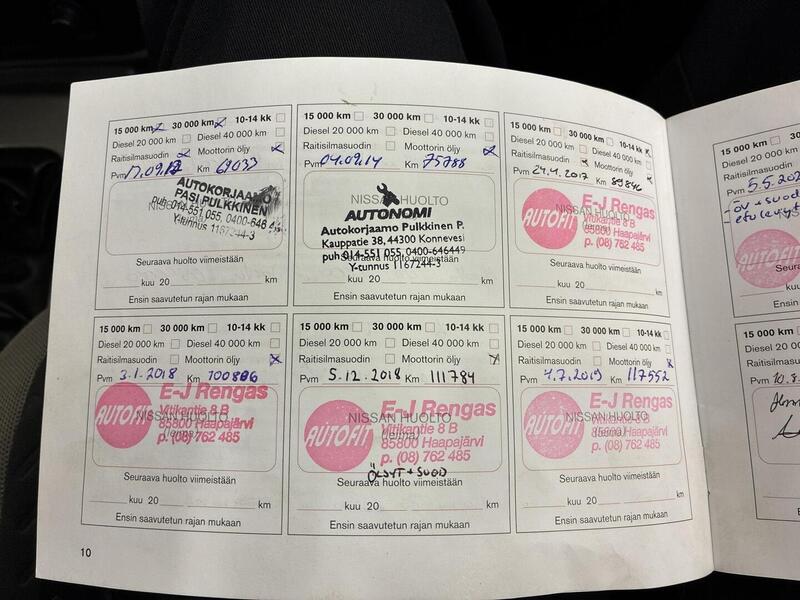 15 000 km 30 000 km 10-14 kk
Diesel 20 000 km Diesel 40 000 km
Raitisilmasuodin Moottorin öljy
Pvm 17.09.12 Km 69033
AUTOKORJAAMO
PASI PULKKINEN
puh 014-551 055, 0400-646
Y-tunnus 1167244-3
Seuraava huolto viimeistään
kuu 20 km
Ensin saavutetun rajan mukaan
15 000 km 30 000 km 10-14 kk
Diesel 20 000 km Diesel 40 000 km
Raitisilmasuodin Moottorin öljy
Pvm 04.09.14 Km 75788
NISSAN HUOLTO
AUTONOMI
Autokorjaamo Pulkkinen P.
Kauppatie 38, 44300 Konnevesi
puh 014-551 055, 0400-646449
Y-tunnus 1167244-3
Seuraava huolto viimeistään
kuu 20 km
Ensin saavutetun rajan mukaan
15 000 km 30 000 km 10-14 kk
Diesel 20 000 km Diesel 40 000 km
Raitisilmasuodin Moottorin öljy
Pvm 24.4.2017 Km 89846
NISSAN HUOLTO
(leima)
AUTOFIT
E-J Rengas
Vitikantie 8 B
85800 Haapajärvi
p. (08) 762 485
Seuraava huolto viimeistään
kuu 20 km
Ensin saavutetun rajan mukaan
15 000 km 30 000 km 10-14 kk
Diesel 20 000 km Diesel 40 000 km
Raitisilmasuodin Moottorin öljy
Pvm 3.1.2018 Km 100886
NISSAN HUOLTO
(leima)
AUTOFIT
E-J Rengas
Vitikantie 8 B
85800 Haapajärvi
p. (08) 762 485
Seuraava huolto viimeistään
kuu 20 km
Ensin saavutetun rajan mukaan
15 000 km 30 000 km 10-14 kk
Diesel 20 000 km Diesel 40 000 km
Raitisilmasuodin Moottorin öljy
Pvm 5.12.2018 Km 111784
NISSAN HUOLTO
(leima)
AUTOFIT
E-J Rengas
Vitikantie 8 B
85800 Haapajärvi
p. (08) 762 485
ÖLJYT + SUOD
Seuraava huolto viimeistään
kuu 20 km
Ensin saavutetun rajan mukaan
15 000 km 30 000 km 10-14 kk
Diesel 20 000 km Diesel 40 000 km
Raitisilmasuodin Moottorin öljy
Pvm 4.7.2019 Km 117552
NISSAN HUOLTO
(leima)
AUTOFIT
E-J Rengas
Vitikantie 8 B
85800 Haapajärvi
p. (08) 762 485
Seuraava huolto viimeistään
kuu 20 km
Ensin saavutetun rajan mukaan
10
15 000 km
Diesel 20 000
Raitisilmasuod
Pvm 5.5.202
AUTOFIT
Seura
Ensin
15 000 km
Diesel 20 000
Raitisilmasuod
Pvm
Seura
Ensin